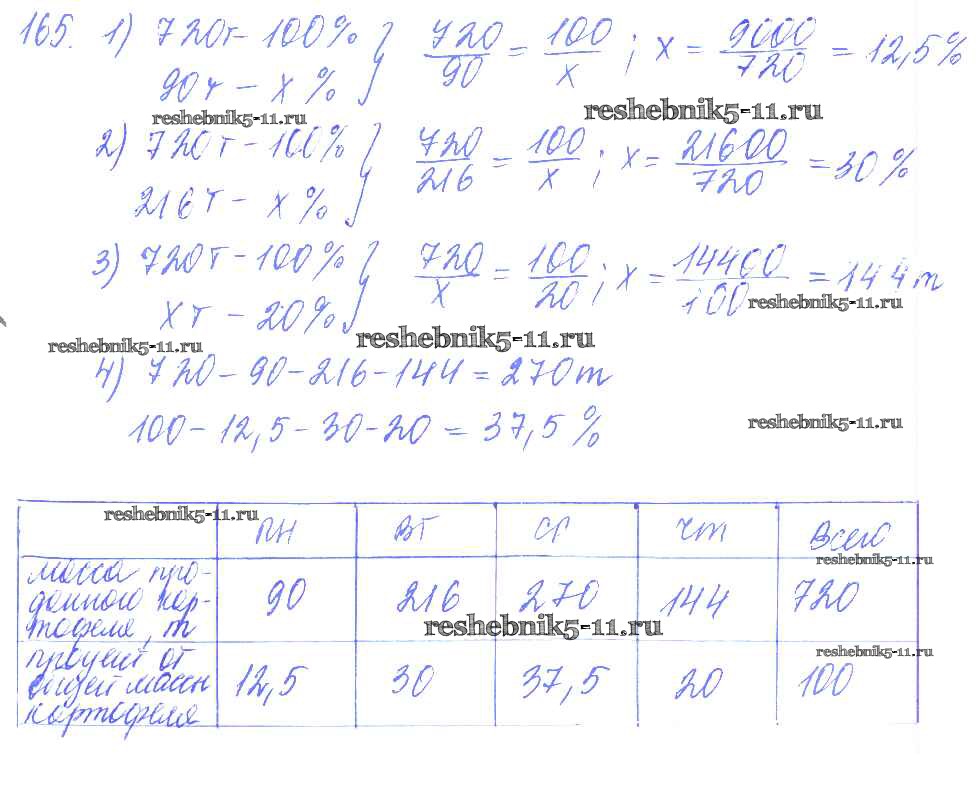 165. 1) 720т – 100% } 720/90 = 100/x ; x = 9000/720 = 12,5%
90т – x %
reshebnik5-11.ru reshebnik5-11.ru
2) 720т – 100% } 720/216 = 100/x ; x = 21600/720 = 30%
216т – x %
3) 720т – 100% } 720/x = 100/20 ; x = 14400/100 = 144т
reshebnik5-11.ru
xт – 20%
reshebnik5-11.ru reshebnik5-11.ru
4) 720 – 90 – 216 – 144 = 270т
100 – 12,5 – 30 – 20 = 37,5%
reshebnik5-11.ru
reshebnik5-11.ru
ПН ВТ СР ЧТ Всего
reshebnik5-11.ru
масса про-
данного кар-
тофеля, т
90 216 270 144 720
reshebnik5-11.ru
reshebnik5-11.ru
процент от
общей массы
картофеля
12,5 30 37,5 20 100